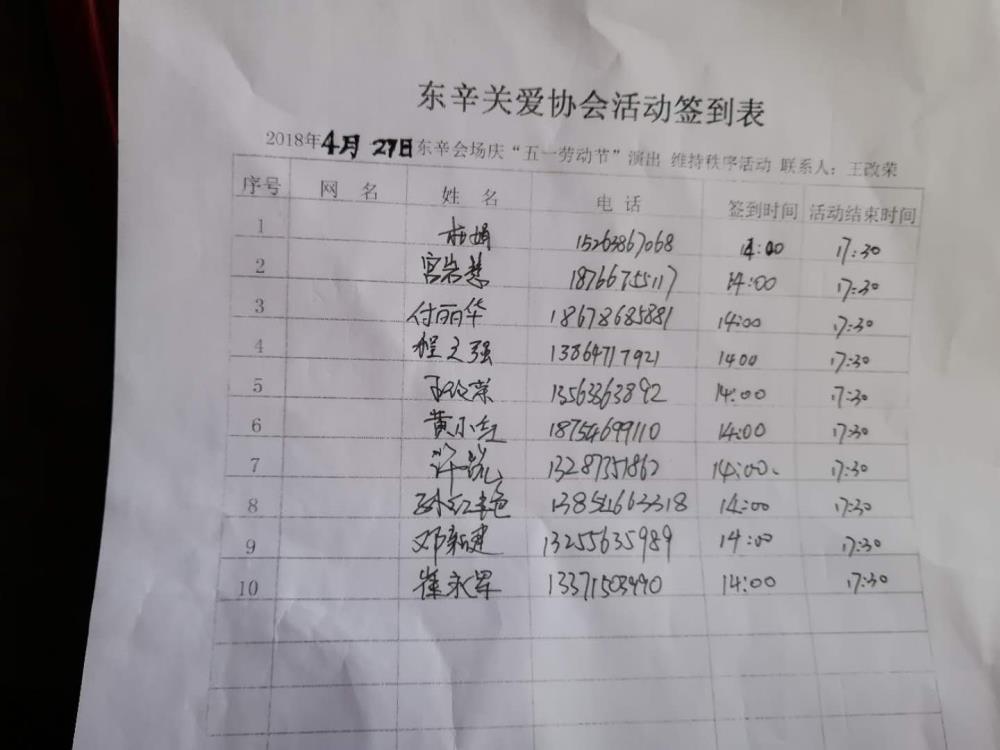 东辛关爱协会活动签到表
2018年4月27日东辛会场庆“五一劳动节”演出 维持秩序活动 联系人：王改荣
序号 网 名 姓 名 电 话 签到时间 活动结束时间
1 杜娟 15263867068 14:00 17:30
2 宫岩慧 18766755117 14:00 17:30
3 付丽华 18678685881 14:00 17:30
4 程文强 13864717921 1400 17:30
5 王改荣 13563363892 14:00 17:30
6 黄小红 18754699110 14:00 17:30
7 许 13287351862 14:00、 17:30
8 孙红艳 13854663318 14:00 17:30
9 邓新建 13255635989 14:00 17:30
10 崔永军 13371503490 14:00 17:30